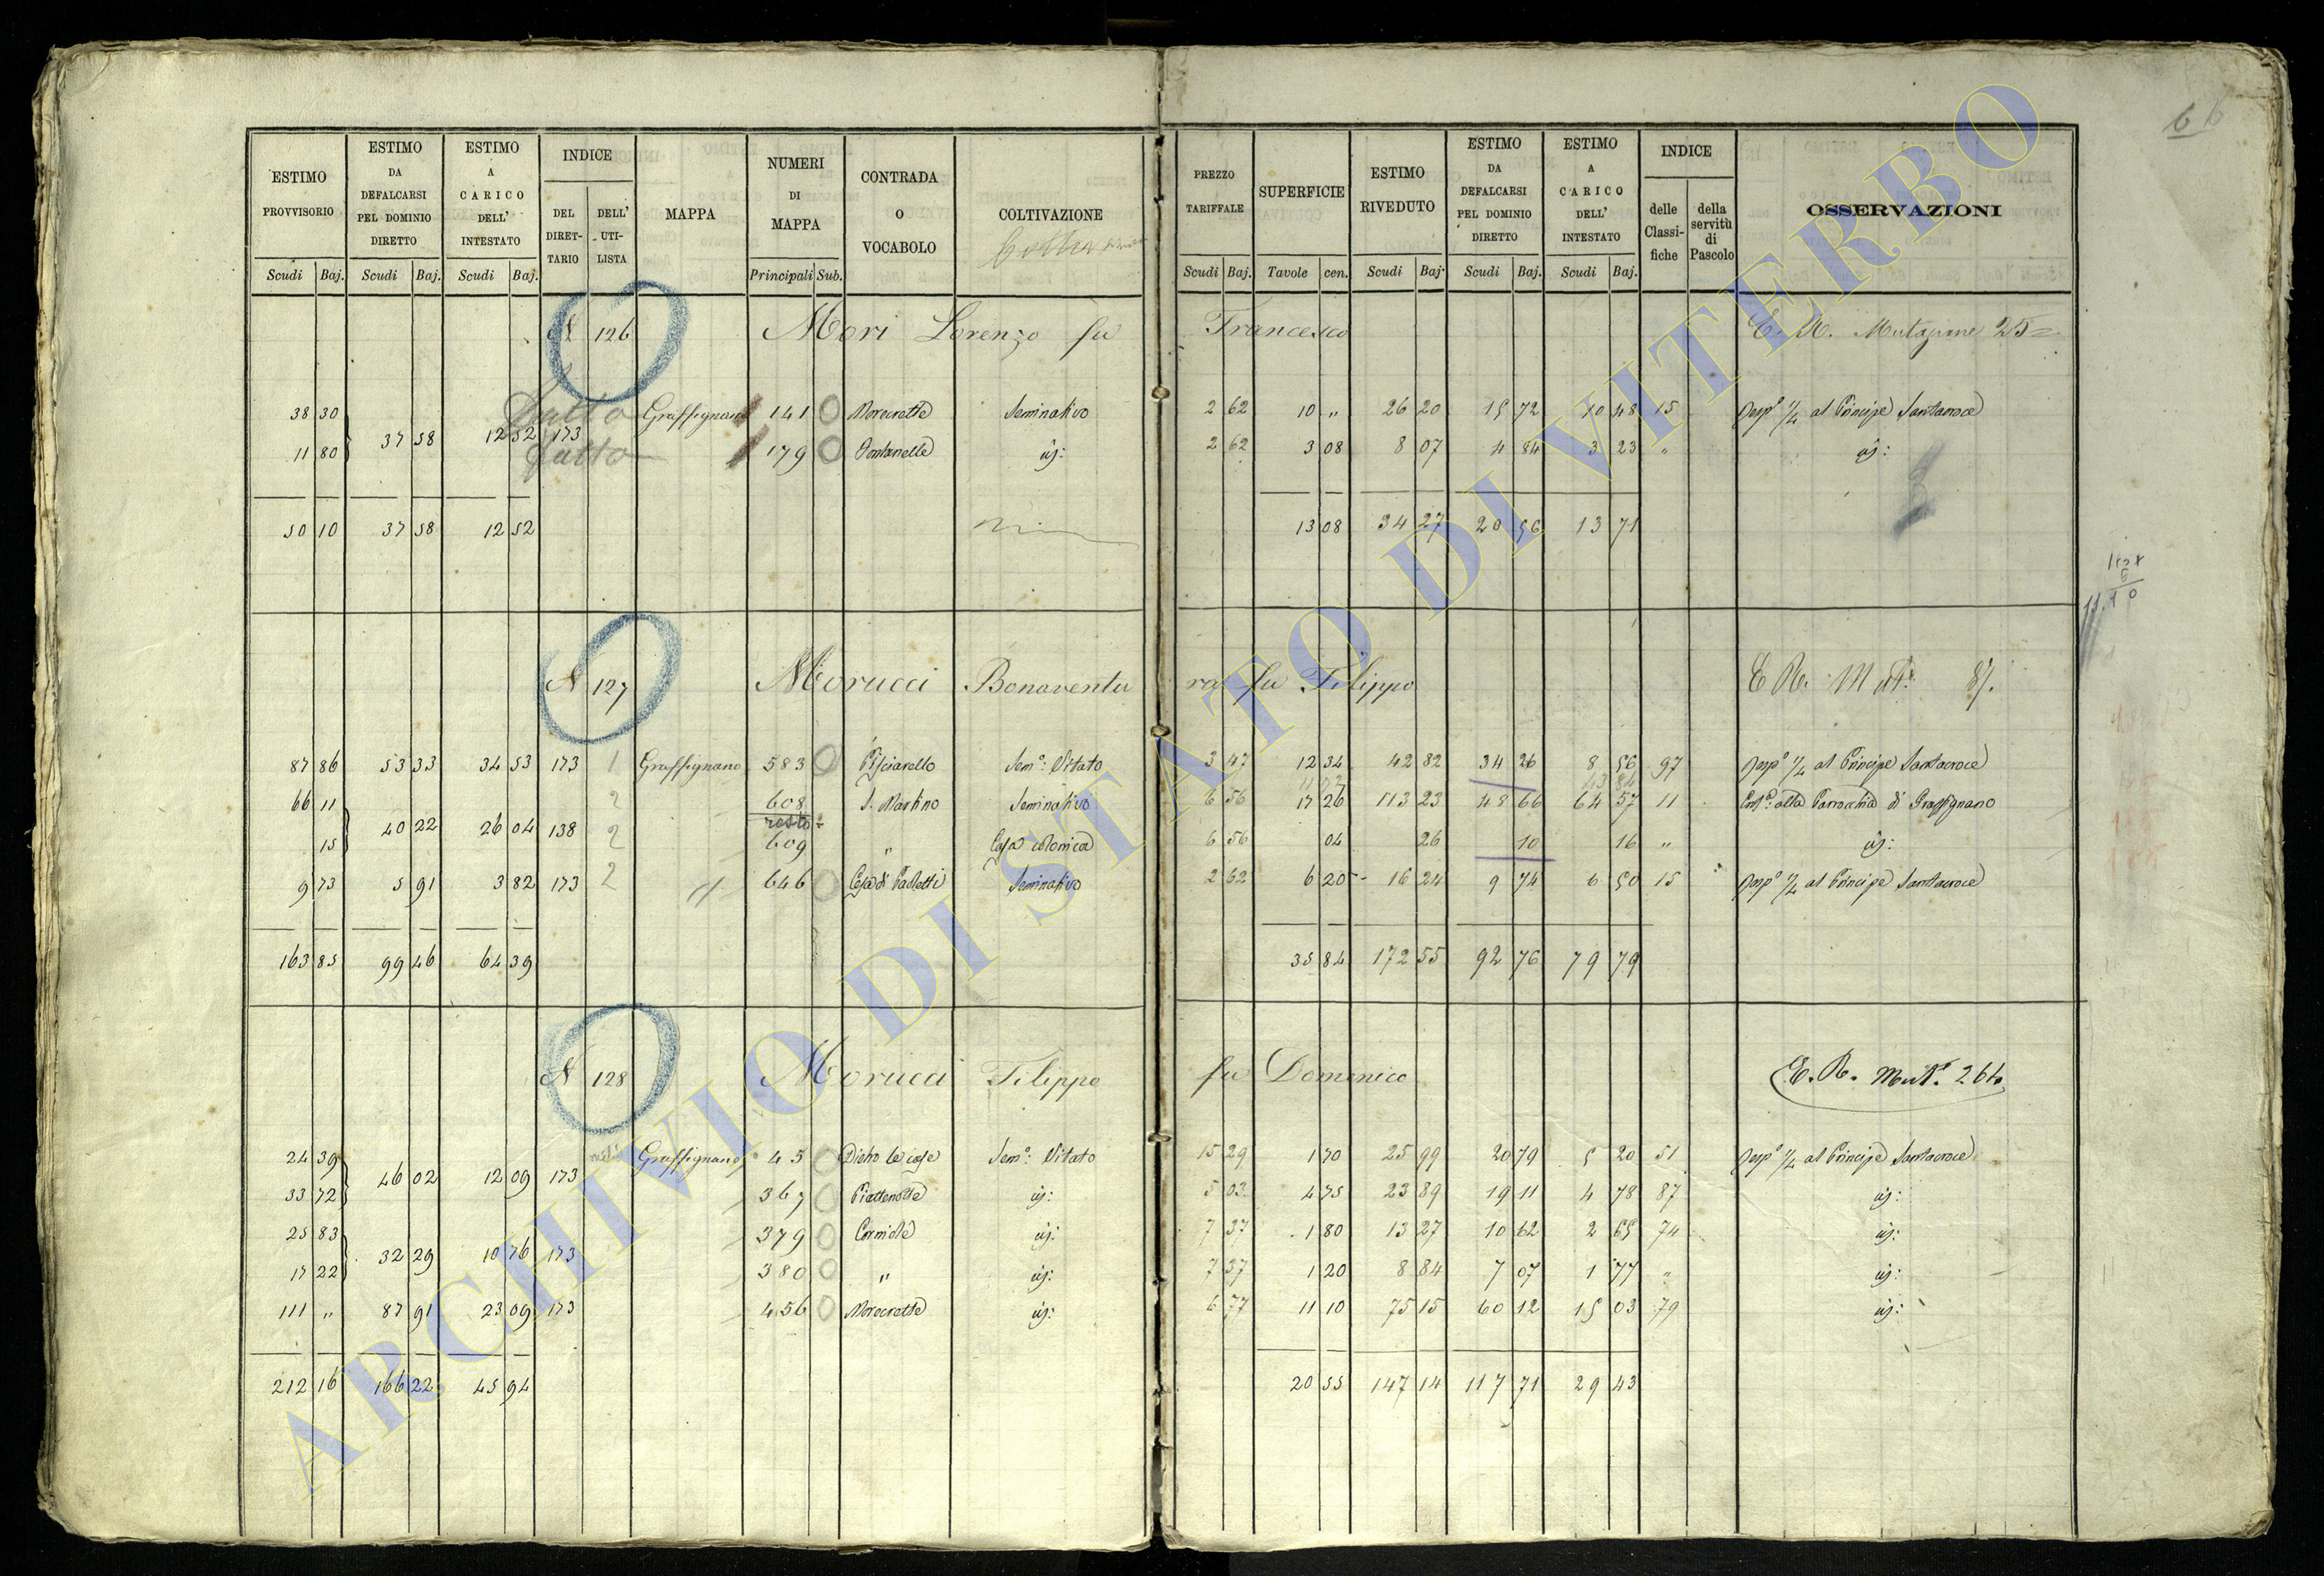 6
ESTIMO PROVVISORIO
ESTIMO DA DEFALCARSI PEL DOMINIO DIRETTO
ESTIMO A CARICO DELL' INTESTATO
INDICE
DEL DIRET-TARIO
DELL' UTI-LISTA
MAPPA
NUMERI DI MAPPA
CONTRADA O VOCABOLO
COLTIVAZIONE
PREZZO TARIFFALE
SUPERFICIE
ESTIMO RIVEDUTO
ESTIMO DA DEFALCARSI PEL DOMINIO DIRETTO
ESTIMO A CARICO DELL' INTESTATO
INDICE
delle Classi-fiche
della servitù di Pascolo
OSSERVAZIONI
Scudi Baj. Scudi Baj. Scudi Baj. Principali Sub. Scudi Baj. Tavole cen. Scudi Baj. Scudi Baj. Scudi Baj.
N 126 Mori Lorenzo fu Francesco E. R. Mutazione 25
38 30 fatto Graffignano 141 Morecrette Seminativo 2 62 10 " 26 20 15 72 10 48 15 Risp.a 1/4 al Principe Santacroce
37 58 12 52 173
11 80 fatto 179 Fontanelle id: 2 62 3 08 8 07 4 84 3 23 " id:
50 10 37 58 12 52 13 08 34 27 20 56 13 71
N 127 Morucci Bonaventura fu Filippo E R. M 87.
87 86 53 33 34 53 173 1 Graffignano 583 Pisciarello Sem.o: Vitato 3 47 12 34 42 82 34 26 8 56 97 Risp.a 1/4 al Principe Santacroce
66 11 2 608 resto S. Martino Seminativo 6 56 17 26 113 23 48 66 64 57 11 alla Parrocchia di Graffignano
40 22 26 04 138
15 2 609 " Casa colonica 6 56 04 26 10 16 " id:
9 73 5 91 3 82 173 2 646 Casa di Paoletti Seminativo 2 62 6 20 16 24 9 74 6 50 15 Risp.a 1/4 al Principe Santacroce
163 85 99 46 64 39 35 84 172 55 92 76 79 79
N 128 Morucci Filippo fu Domenico E. R. Mut.e 264
24 39 Graffignano 45 Dietro le case Sem.o: Vitato 15 29 1 70 25 99 20 79 5 20 51 Risp.a 1/4 al Principe Santacroce
46 02 12 09 173
33 72 367 id: 5 03 4 75 23 89 19 11 4 78 87 id:
25 83 379 id: 7 37 1 80 13 27 10 62 2 65 74 id:
32 29 10 76 173
17 22 380 " id: 7 37 1 20 8 84 7 07 1 77 " id:
111 " 87 91 23 09 173 456 Morecrette id: 6 77 11 10 75 15 60 12 15 03 79 id:
212 16 166 22 45 94 20 55 147 14 117 71 29 43
ARCHIVIO DI STATO DI VITERBO